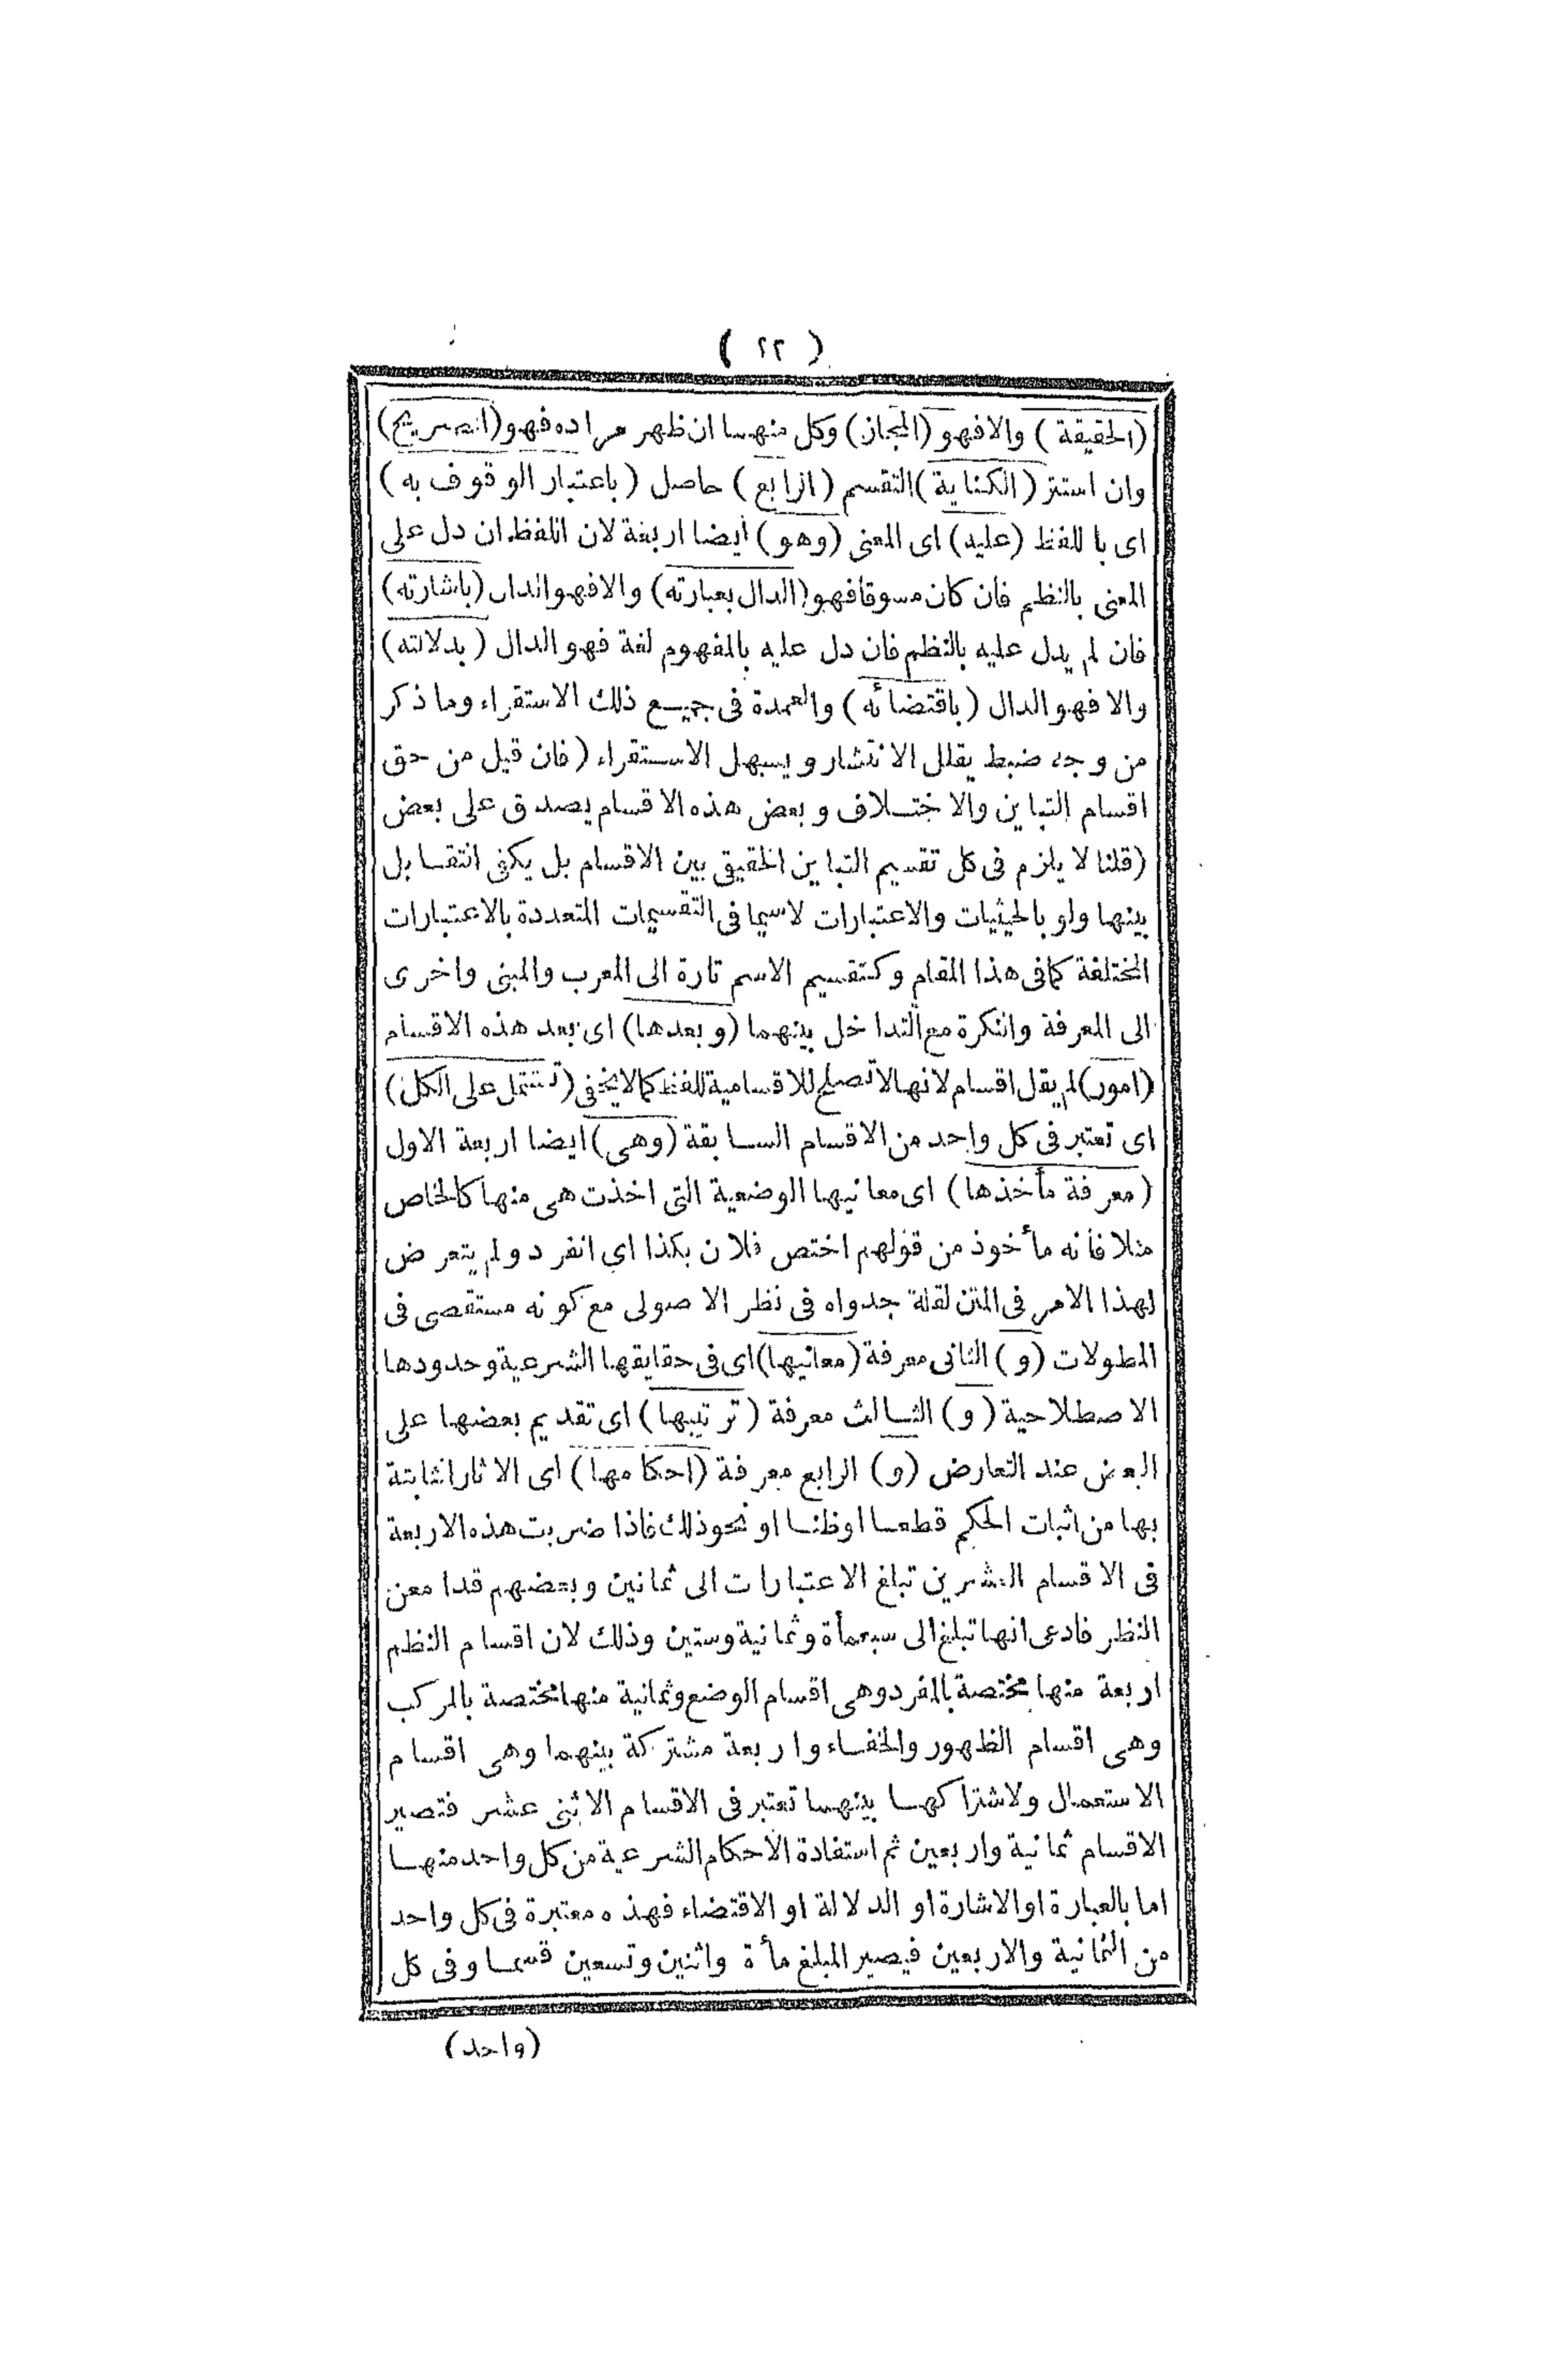 ( ٢٢ )
(الحقيقة) والا فهو (المجاز) وكل منهما ان ظهر مراده فهو (الصريح)
وان استتر (الكناية) التقسم (الرابع) حاصل (باعتبار الوقوف به)
اى باللفظ (عليه) اى المعنى (وهو) ايضا اربعة لان اللفظ ان دل على
المعنى بالنظم فان كان مسوقا فهو (الدال بعبارته) والا فهو الدال (باشارته)
فان لم يدل عليه بالنظم فان دل عليه بالمفهوم لغة فهو الدال (بدلالته)
والا فهو الدال (باقتضائه) والعمدة فى جميع ذلك الاستقراء وما ذكر
من وجه ضبط يقلل الانتشار ويسهل الاستقراء (فان قيل من حق
اقسام التباين والاختلاف وبعض هذه الاقسام يصدق على بعض
(قلنا لا يلزم فى كل تقسيم التباين الحقيقى بين الاقسام بل يكفى التقابل
بينها ولو بالحيثيات والاعتبارات لاسيما فى التقسيمات المتعددة بالاعتبارات
المختلفة كما فى هذا المقام وكتقسيم الاسم تارة الى المعرب والمبنى واخرى
الى المعرفة والنكرة مع التداخل بينهما (وبعدها) اى بعد هذه الاقسام
(امور) لم يقل اقسام لانها لا تصلح للاقسامية للفظ كما لا يخفى (تشتمل على الكل)
اى تعتبر فى كل واحد من الاقسام السابقة (وهى) ايضا اربعة الاول
(معرفة مأخذها) اى معانيها الوضعية التى اخذت هى منها كالخاص
مثلا فأنه مأخوذ من قولهم اختص فلان بكذا اى انفرد ولم يتعرض
لهذا الامر فى المتن لقلة جدواه فى نظر الاصولى مع كونه مستقصى فى
المطولات (و) الثانى معرفة (معانيها) اى فى حقايقها الشرعية وحدودها
الاصطلاحية (و) الثالث معرفة (ترتيبها) اى تقديم بعضها على
البعض عند التعارض (و) الرابع معرفة (احكامها) اى الاثار الثابتة
بها من اثبات الحكم قطعا اوظنا او نحو ذلك فاذا ضربت هذه الاربعة
فى الاقسام العشرين تبلغ الاعتبارات الى ثمانين وبعضهم قد امعن
النظر فادعى انها تبلغ الى سبعمأة وثمانية وستين وذلك لان اقسام النظم
اربعة منها مختصة بالمفرد وهى اقسام الوضع وثمانية منها مختصة بالمركب
وهى اقسام الظهور والخفاء واربعة مشتركة بينهما وهى اقسام
الاستعمال ولاشتراكها بينهما تعتبر فى الاقسام الاثنى عشر فتصير
الاقسام ثمانية واربعين ثم استفادة الاحكام الشرعية من كل واحد منها
اما بالعبارة او الاشارة او الدلالة او الاقتضاء فهذه معتبرة فى كل واحد
من الثمانية والاربعين فيصير المبلغ مأة واثنين وتسعين قسما وفى كل
(واحد)